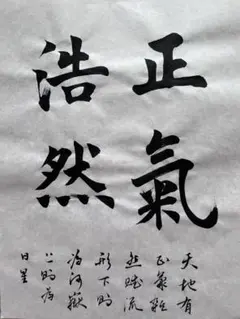 正氣
浩然
天地有
正氣雜
然賦流
形下則
為河嶽
上則為
日星